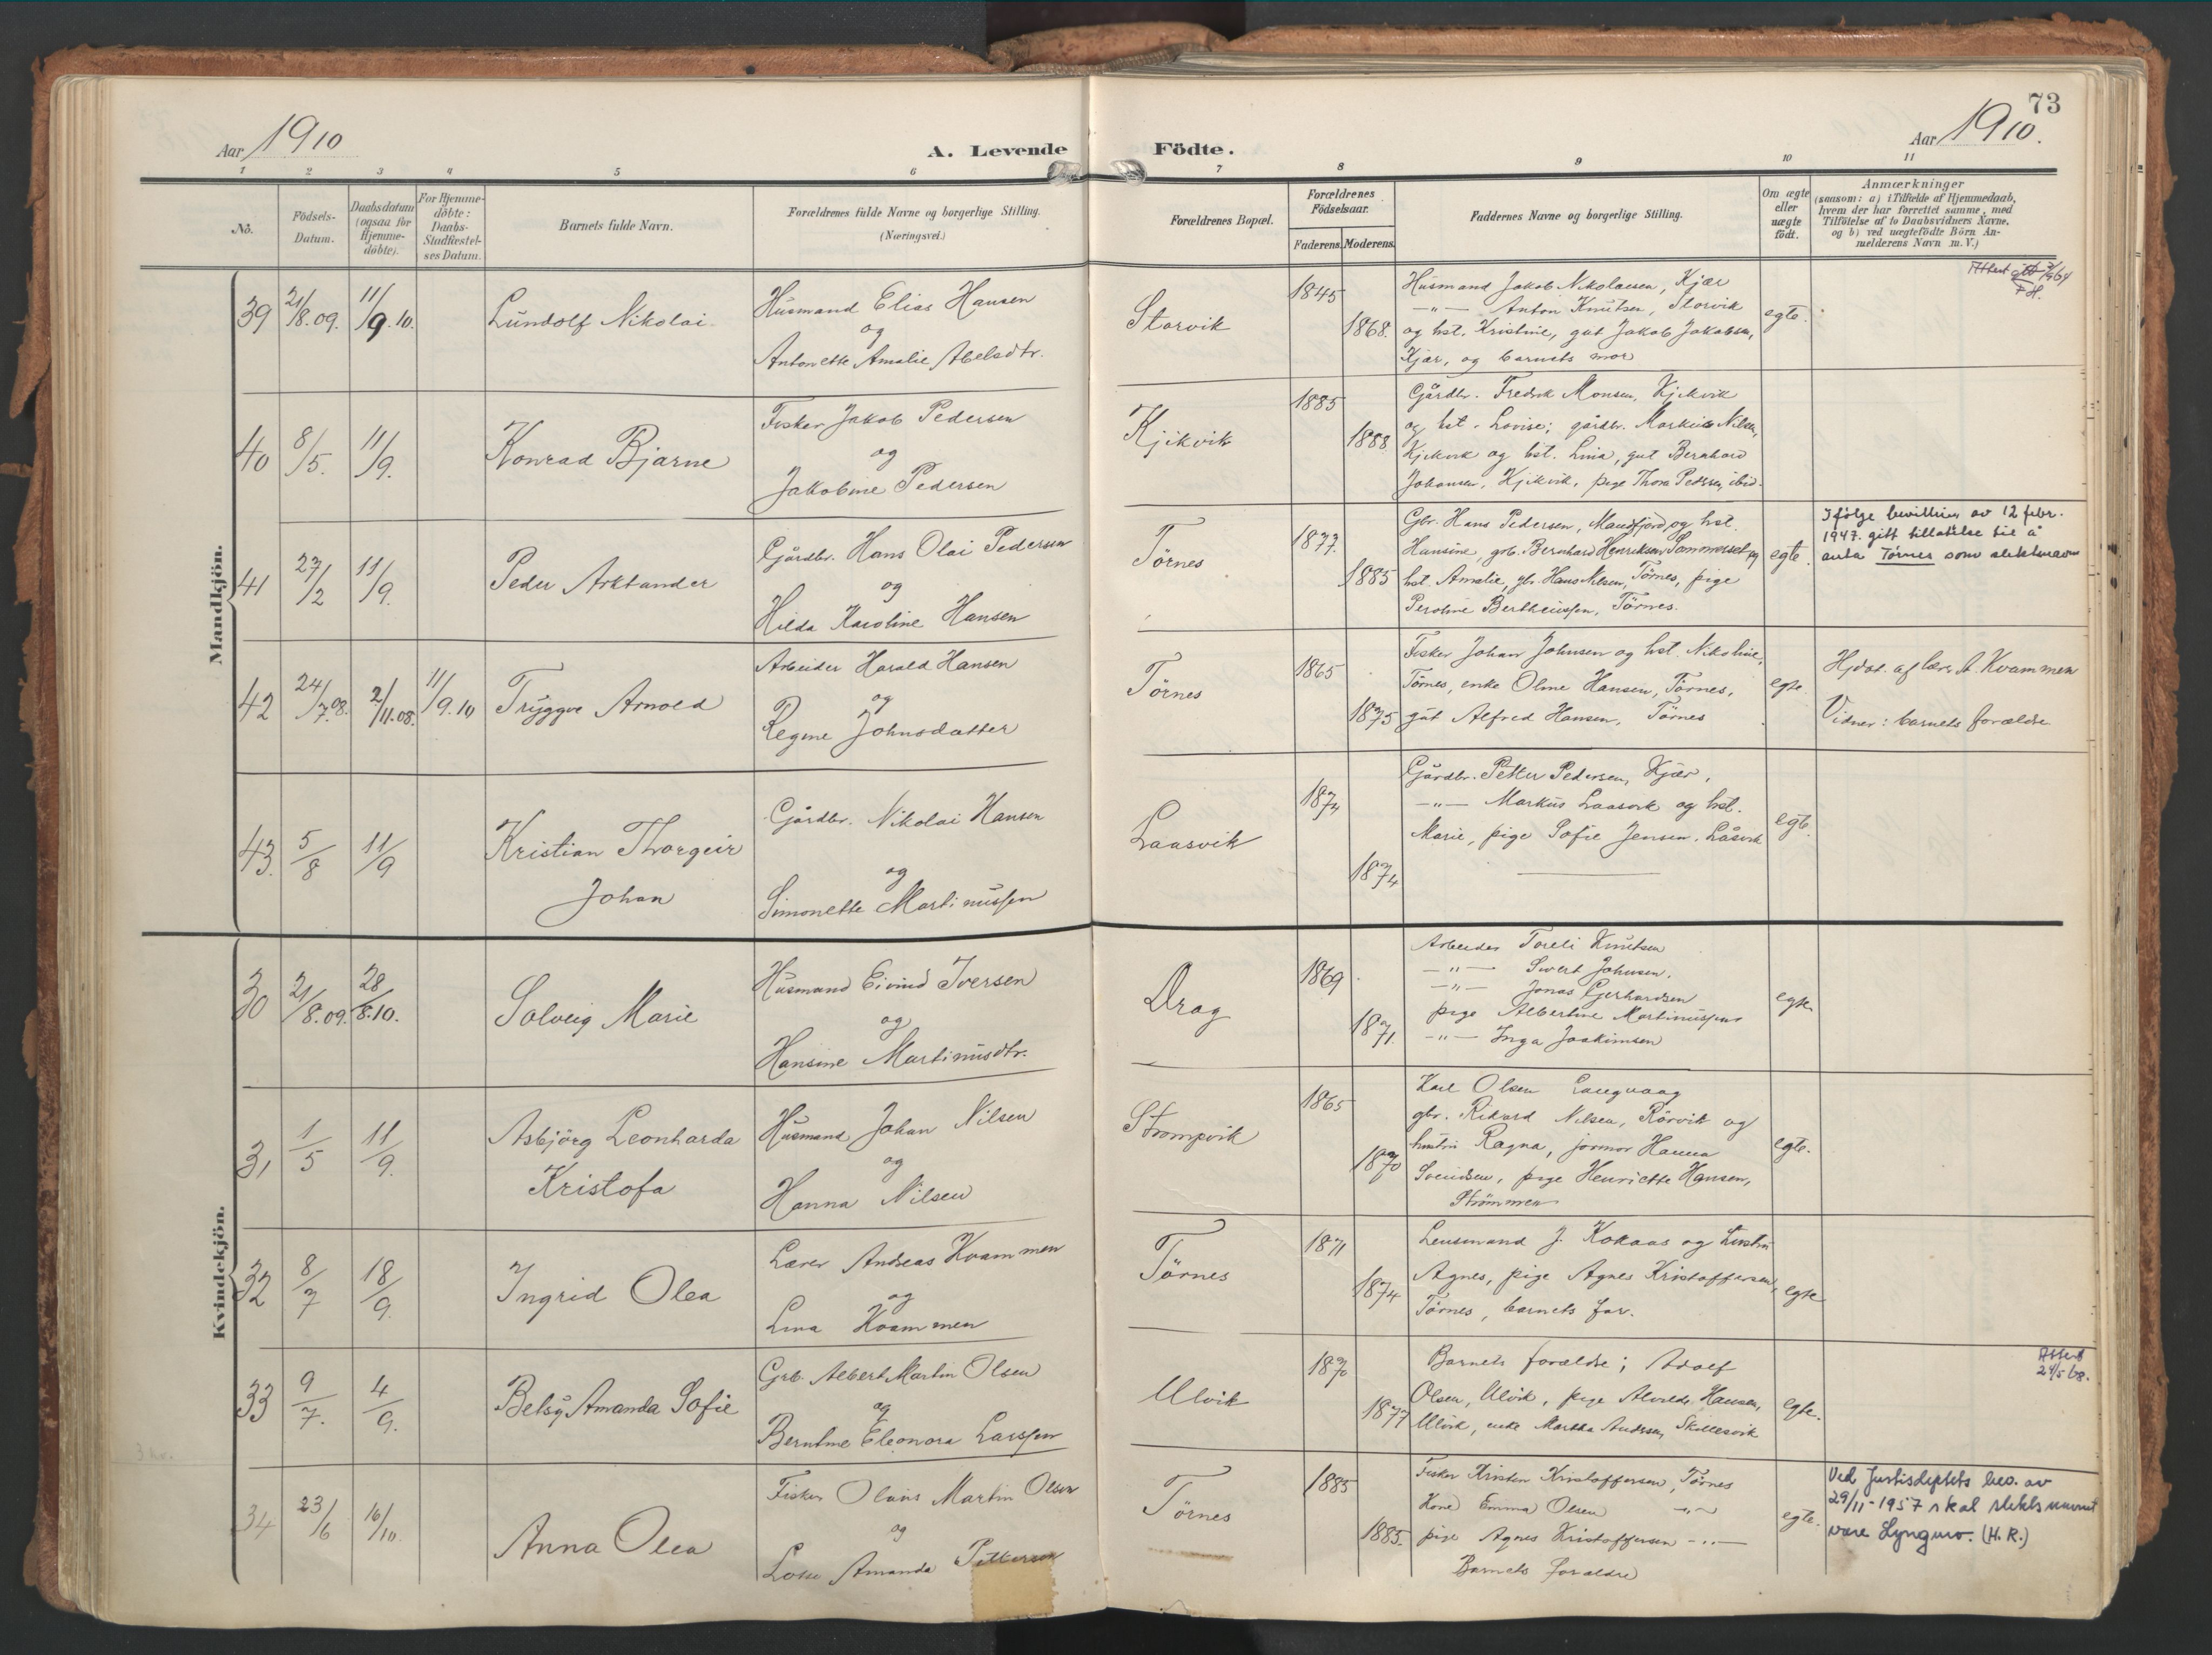 73
Aar 1910
A. Levende
Födte.
Aar 1910.
1 2 3 4 5 6 7 8 9 10 11
No.
Födsels-
Datum.
Daabsdatum
(ogsaa for
Hjemme-
döbte).
For Hjemme-
döbte:
Daabs-
Stadfestel-
ses Datum.
Barnets fulde Navn.
Forældrenes fulde Navne og borgerlige Stilling.
(Næringsvei.)
Forældrenes Bopæl.
Forældrenes
Födselsaar.
Faderens. Moderens.
Faddernes Navne og borgerlige Stilling.
Om ægte
eller
uægte
födt.
Anmærkninger
(saasom: a) i Tilfælde af Hjemmedaab,
hvem der har forrettet samme, med
Tilföielse af to Daabsvidners Navne,
og b) ved uægtefödte Börn An-
melderens Navn m. V.)
Mandkjön.
39
21/8.09.
11/9.10.
Lundolf Nikolai
Husmand Elias Hansen
og
Antonette Amalie Abelsdtr.
Storvik
1845
1868.
Husmand Jakob Nikolaisen, Kjær
-"- Anton Knutsen, Storvik
og hst. Kristine, gut Jakob Jakobsen,
Kjær, og barnets mor
egte.
40
8/5.
11/9.
Konrad Bjarne
Fisker Jakob Pedersen
og
Jakobine Pedersen
Kjikvik
1885
1888
Gårdbr. Fredrik Monsen, Kjikvik
og hst. Lovise; gårdbr. Markus Nilsen,
Kjikvik og hst. Lina, gut Bernhard
Johansen, Kjikvik, pige Thora Pedersen, ibid.
41
27/2
11/9.
Peder Arktander
Gjårdbr. Hans Olai Pedersen
og
Hilda Karoline Hansen
Törnes
1877.
1885
Gbr. Hans Pedersen, Mandfjord og hst.
Hansine, grb. Bernhard Henriksen Sommerset og
hst. Amalie, gbr. Hans Nilsen, Törnes, pige
Peroline Bertheussen, Törnes.
egte.
Ifølge bevilling av 12 febr.
1947. gitt tillatelse til å
anta Tørnes som slektsnavn
42
24/7.08.
2/11.08.
11/9.10
Tryggve Arnold
Arbeider Harald Hansen
og
Regine Johnsdatter
Törnes
1865
1875
Fisker Johan Johnsen og hst. Nikoline,
Törnes, enke Oline Hansen, Törnes,
gut Alfred Hansen, Törnes
egte.
Hjdøt. af lær. A. Kvammen
Vidner: barnets forældre
43.
5/8
11/9
Kristian Thorgeir
Johan
Gjårdbr. Nikolai Hansen
og
Simonette Martinussen
Laasvik
1874
1874
Gjårdbr. Petter Pedersen, Kjær,
-"- Markus Laasvik og hst.
Marie, pige Sofie Jensen, Låsvik
egte.
Kvindekjön.
30
21/8.09.
28/8.10.
Solveig Marie
Husmand Eivind Iversen
og
Hansine Martinusdtr.
Drag
1869
1871.
Arbeider Toreli Knutsen
-"- Sivert Johnsen.
-"- Jonas Gerhardsen
pige Albertine Martinussen
-"- Inga Joakimsen
egte
31
1/5
11/9.
Asbjörg Leonharda
Kristofa
Husmand Johan Nilsen
og
Hanna Nilsen
Strompvik
1865
1870
Karl Olsen Langvaag
gbr. Rikard Nilsen, Rörvik og
hustru Ragna, jormor Hanna
Svendsen, pige Henriette Hansen,
Strömmen
egte.
32
8/7
18/9.
Ingrid Olea
Lærer Andreas Kvammen
og
Lina Kvammen
Törnes
1871
1874
Lensmand J. Kokaas og hustru
Agnes, pige Agnes Kristoffersen,
Törnes, barnets far.
egte
33
9/7.
4/9.
Betsy Amanda Sofie
Grb. Albert Martin Olsen
og
Berntine Eleonora Larssen
Ulvik
1870
1877
Barnets forældre; Adolf
Olsen, Ulvik, pige Alvilde Hansen,
Ulvik, enke Martha Andersen, Skillesvik
egte.
Attest
24/5 68.
34
23/6
16/10.
Anna Olea
Fisker Olaus Martin Olsen
og
Lotte Amanda Pettersen
Törnes
1885
1885.
Fisker Kristen Kristoffersen, Törnes
Kone Emma Olsen -"-
pige Agnes Kristoffersen -"-
Barnets forældre
egte.
Ved Justisdeptets bes. av
29/11-1957 skal slektsnavnet
være Lyngmo. (H.R.)